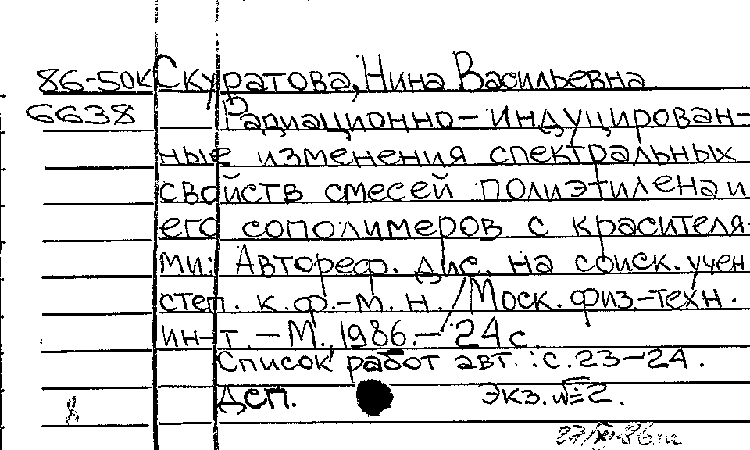 86-50к Скуратова, Нина Васильевна
6638 Радиационно-индуцирован-
ные изменения спектральных
свойств смесей полиэтилена и
его сополимеров с красителя-
ми: Автореф. дис. на соиск. учен
степ. к.ф.-м.н. / Моск. физ.-техн.
ин-т. - М., 1986. - 24 с.
Список работ авт.: с. 23-24.
Дсп. Экз. №2.